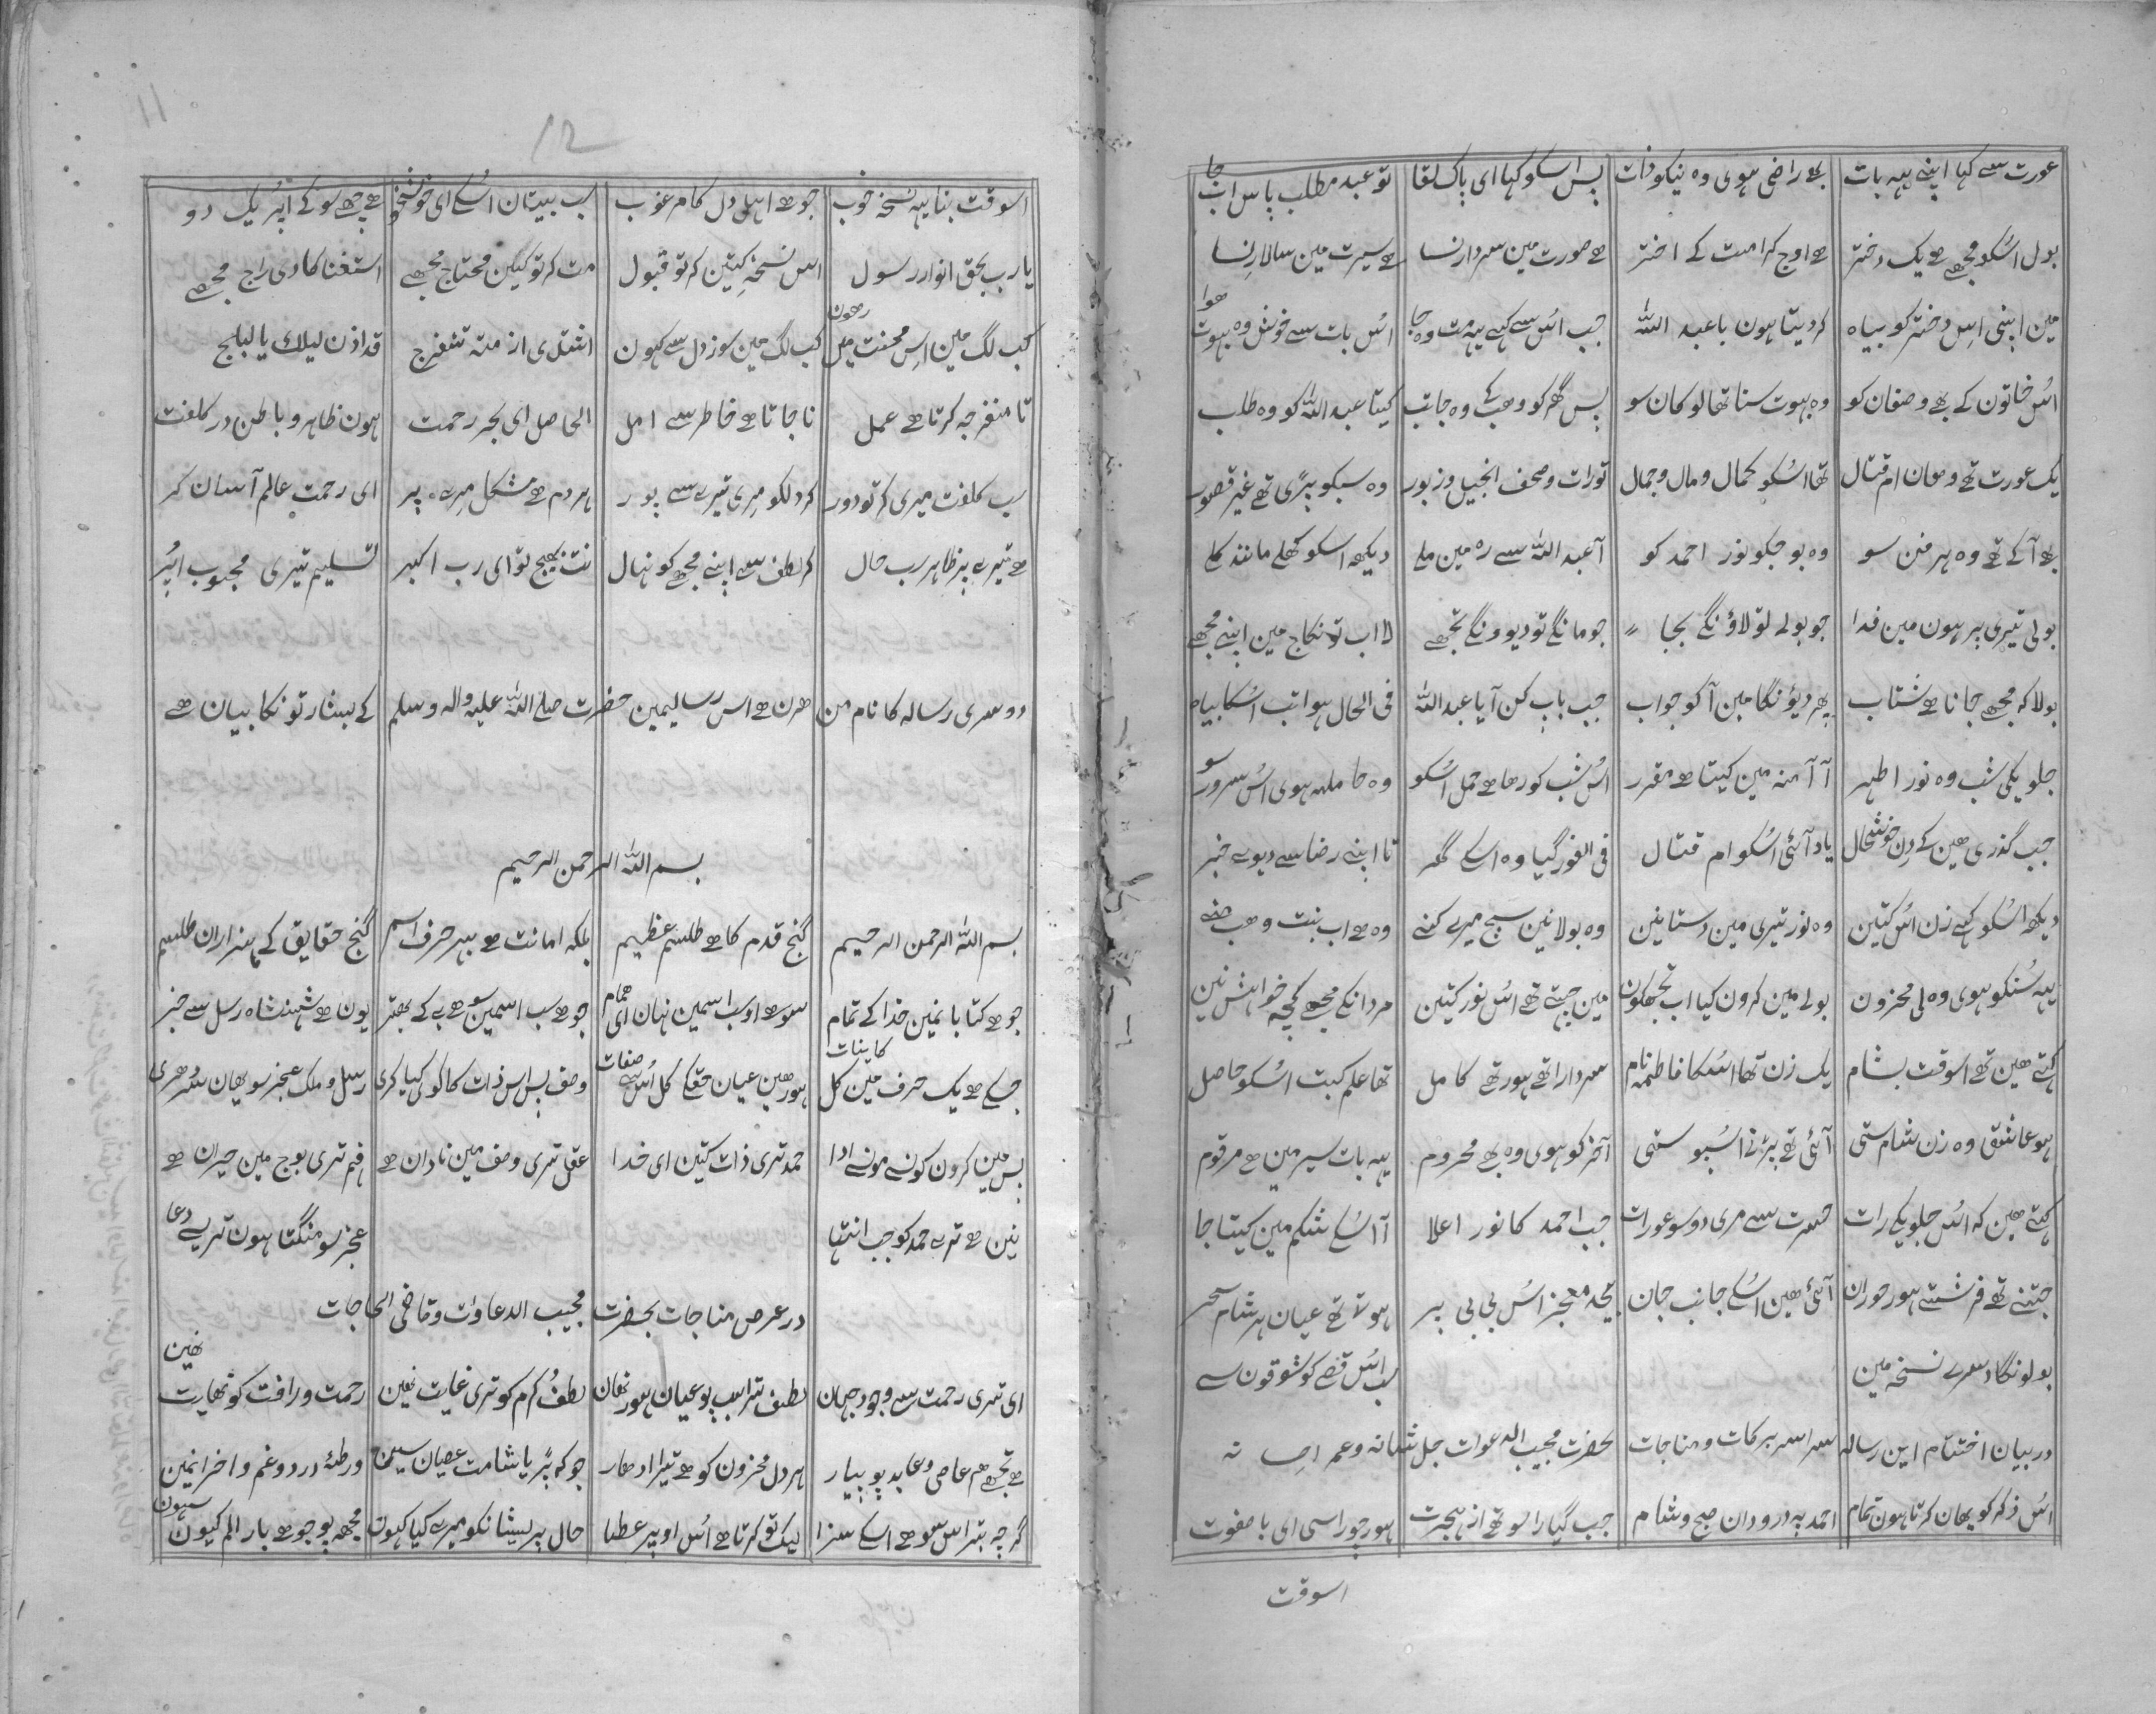 عورت سے کہا اپنے یہہ بات بھے راضی ہوی وہ نیکو ذات پس اسکو کہا ای پاک لقا تو عبد مطلب پاس اب جا
بول اسکو مجھے ہے یک دختر ہے اوج کرامت کے اختر ہے صورت مین سردار نسا ہے سیرت مین سالار نسا
مین اپنی اس دختر کو بیاہ کر دیتا ہون با عبد اللہ جب اس سے کہے یہہ مت وہ جا اس بات سے خوش وہ بہوت ہوا
اس خاتون کے بھے وصفان کو وہ بہوت سنا تھا لوکان سو پس گھر کو وھب کے وہ جانب کیتا عبد اللہ کو وہ طلب
یک عورت تھے وھان ام قتال تھا اسکو کمال و مال و جمال تورات و صحف انجیل و زبور وہ سبکو پڑی تھے غیر قصور
بھے آکے تھے وہ ہر فن سو وہ بوجکو نور احمد کو آ عبد اللہ سے رہ مین ملے دیکھ اسکو کھلے مانند کلے
بولی تیری پر ہون مین فدا جو بولے تو لاؤنگے بجا جو مانگے تو دیوونگے تجھے لا اب تو نکاح مین اپنے مجھے
بولا کہ مجھے جانا ہے شتاب پھر دیؤنگا مین آکو جواب جب باپ کن آیا عبد اللہ فی الحال ہوا تب اسکا بیاہ
جلویکی شب وہ نور اطہر آ آمنہ مین کیتا ہے مقر اس شب کو رھا ہے حمل اسکو وہ حاملہ ہوی اس سرور سو
جب گذری ھین کے دن خوشحال یاد آئی اسکو ام قتال فی الفور گیا وہ اسکے گھر تا اپنے رضا سے دیوے خبر
دیکھ اسکو کہے زن اس کتین وہ نور تیری مین دستا نین وہ بولا نین سچ میرے کنے وہ ہے اب بنت وھب کنے
یہہ سنکو ہوی وہ لی محزون بولے مین کرون کیا اب تجھکون مین چہتے تھے اس نور کتین مردانکے مجھے کچھ خواہش نین
کہتے ھین تھے اسوقت بشام یک زن تھا اسکا فاطمہ نام سردارا تھے ہور تھے کامل تھا علم کتب اسکو حاصل
ہو عاشق وہ زن شام ستی آئی تھے پڑنے اسپو ستی آخر کو ہوی وہ بھے محروم یہہ بات سیر مین ہے مرقوم
کہتے ھین کہ اس جلویکے رات حسرت سے مری دو سو عورات جب احمد کا نور اعلا آ اسکے شکم مین کیتا جا
جتنے تھے فرشتے ہور حوران آئی ھین اسکے جانب جان بیحد معجز اس بی بی پر ہوتا تھے عیان ہر شام سحر
بولونگا دسرے نسخہ مین سب اس قصے کو شوقون سے
در بیان اختتام این رسالہ سراسر برکات و مناجات بحضرت مجیب الدعوات جل شانہ و عم احسانہ
اس ذکر کو یھان کرتا ہون تمام احمد پہ درودان صبح و شام جب گیارا سو تھے از ہجرت ہور چوراسی ای با صفوت
اسوقت
12
11
اسوقت بنا یہہ نسخہ خوب جو ہے اہل دل کا مرغوب سب بیتان اسکے ای خوشخو ہے چھے سو کے اپر یک دو
یا رب بحق انوار رسول اس نسخہ کیتین کر تو قبول مت کر تو کیین محتاج مجھے استغنا کا دی راج مجھے
کب لگ مین اس محنت مین رھون کب لگ مین سوز دل سے کہون اشتدی ازمتہ تنفرج قد اذن لیلک یا لبلج
تا منفرجہ کرتا ہے عمل نا جاتا ہے خاطر سے امل الحاصل ای بحر رحمت ہون ظاہر و باطن در کلفت
سب کلفت میری کر تو دور کر دلکو مری تیرے سے پور ہر دم ہے مشکل مرے پر ای رحمت عالم آسان کر
ہے تیرے پر ظاہر سب حال کر لطف سے اپنے مجھے کو نہال نت بھیج تو ای رب اکبر تسلیم تیری محبوب اپر
دوسری رسالہ کا نام من ھرن ہے اس رسالیمین حضرت صلے اللہ علیہ والہ وسلم کے بشارتونکا بیان ہے
بسم اللہ الرحمن الرحیم
بسم اللہ الرحمن الرحیم گنج قدم کا ہے طلسم عظیم بلکہ امانت ہے بہر حرف اسم گنج حقایق کے ہزاران طلسم
جو ہے کتابانمین خدا کے تمام سو ہے او سب اسمین نہان ای ھمام جو ہے سب اسمین سو ہے ب کے بھیتر یون ہے شہنشاہ رسل سے خبر
جسکے ہے یک حرف مین کل کاینات ہور ھین عیان حق کے کل اس سے صفات وصف بس اس ذات کا کوئی کیا کری رسل و ملک عجز سو یھان سر دھری
بس مین کرون کونسے مونسے ادا حمد تری ذات کتین ای خدا عقل تری وصف مین نادان ہے فہم تری بوج مین حیران ہے
نین ہے ترے حمد کو جب انتہا عجز سو منگتا ہون ترے سے دعا
در عرض مناجات بحضرت مجیب الدعاوات و قاضی الحاجات
ای تری رحمت سے وجود جہان لطف ترا سب پو عیان ہور نھان لطف کرم کو تری غایت نھین رحمت و رافت کو نھایت نھین
ہے تجھے ھم عاصی و عابد پو پیار ہر دل محزون کو ہے تیرا ادھار جو کہ پڑیا شامت عصیان سین ورطۂ درد و غم و اخزانمین
گرچہ بتر اس سو ہے اسکے سزا لیک تو کرتا ہے اس اوپر عطا حال پریشانکو میرے کیا کہون مجھہ پو جو ہے بار الم کیون سہون